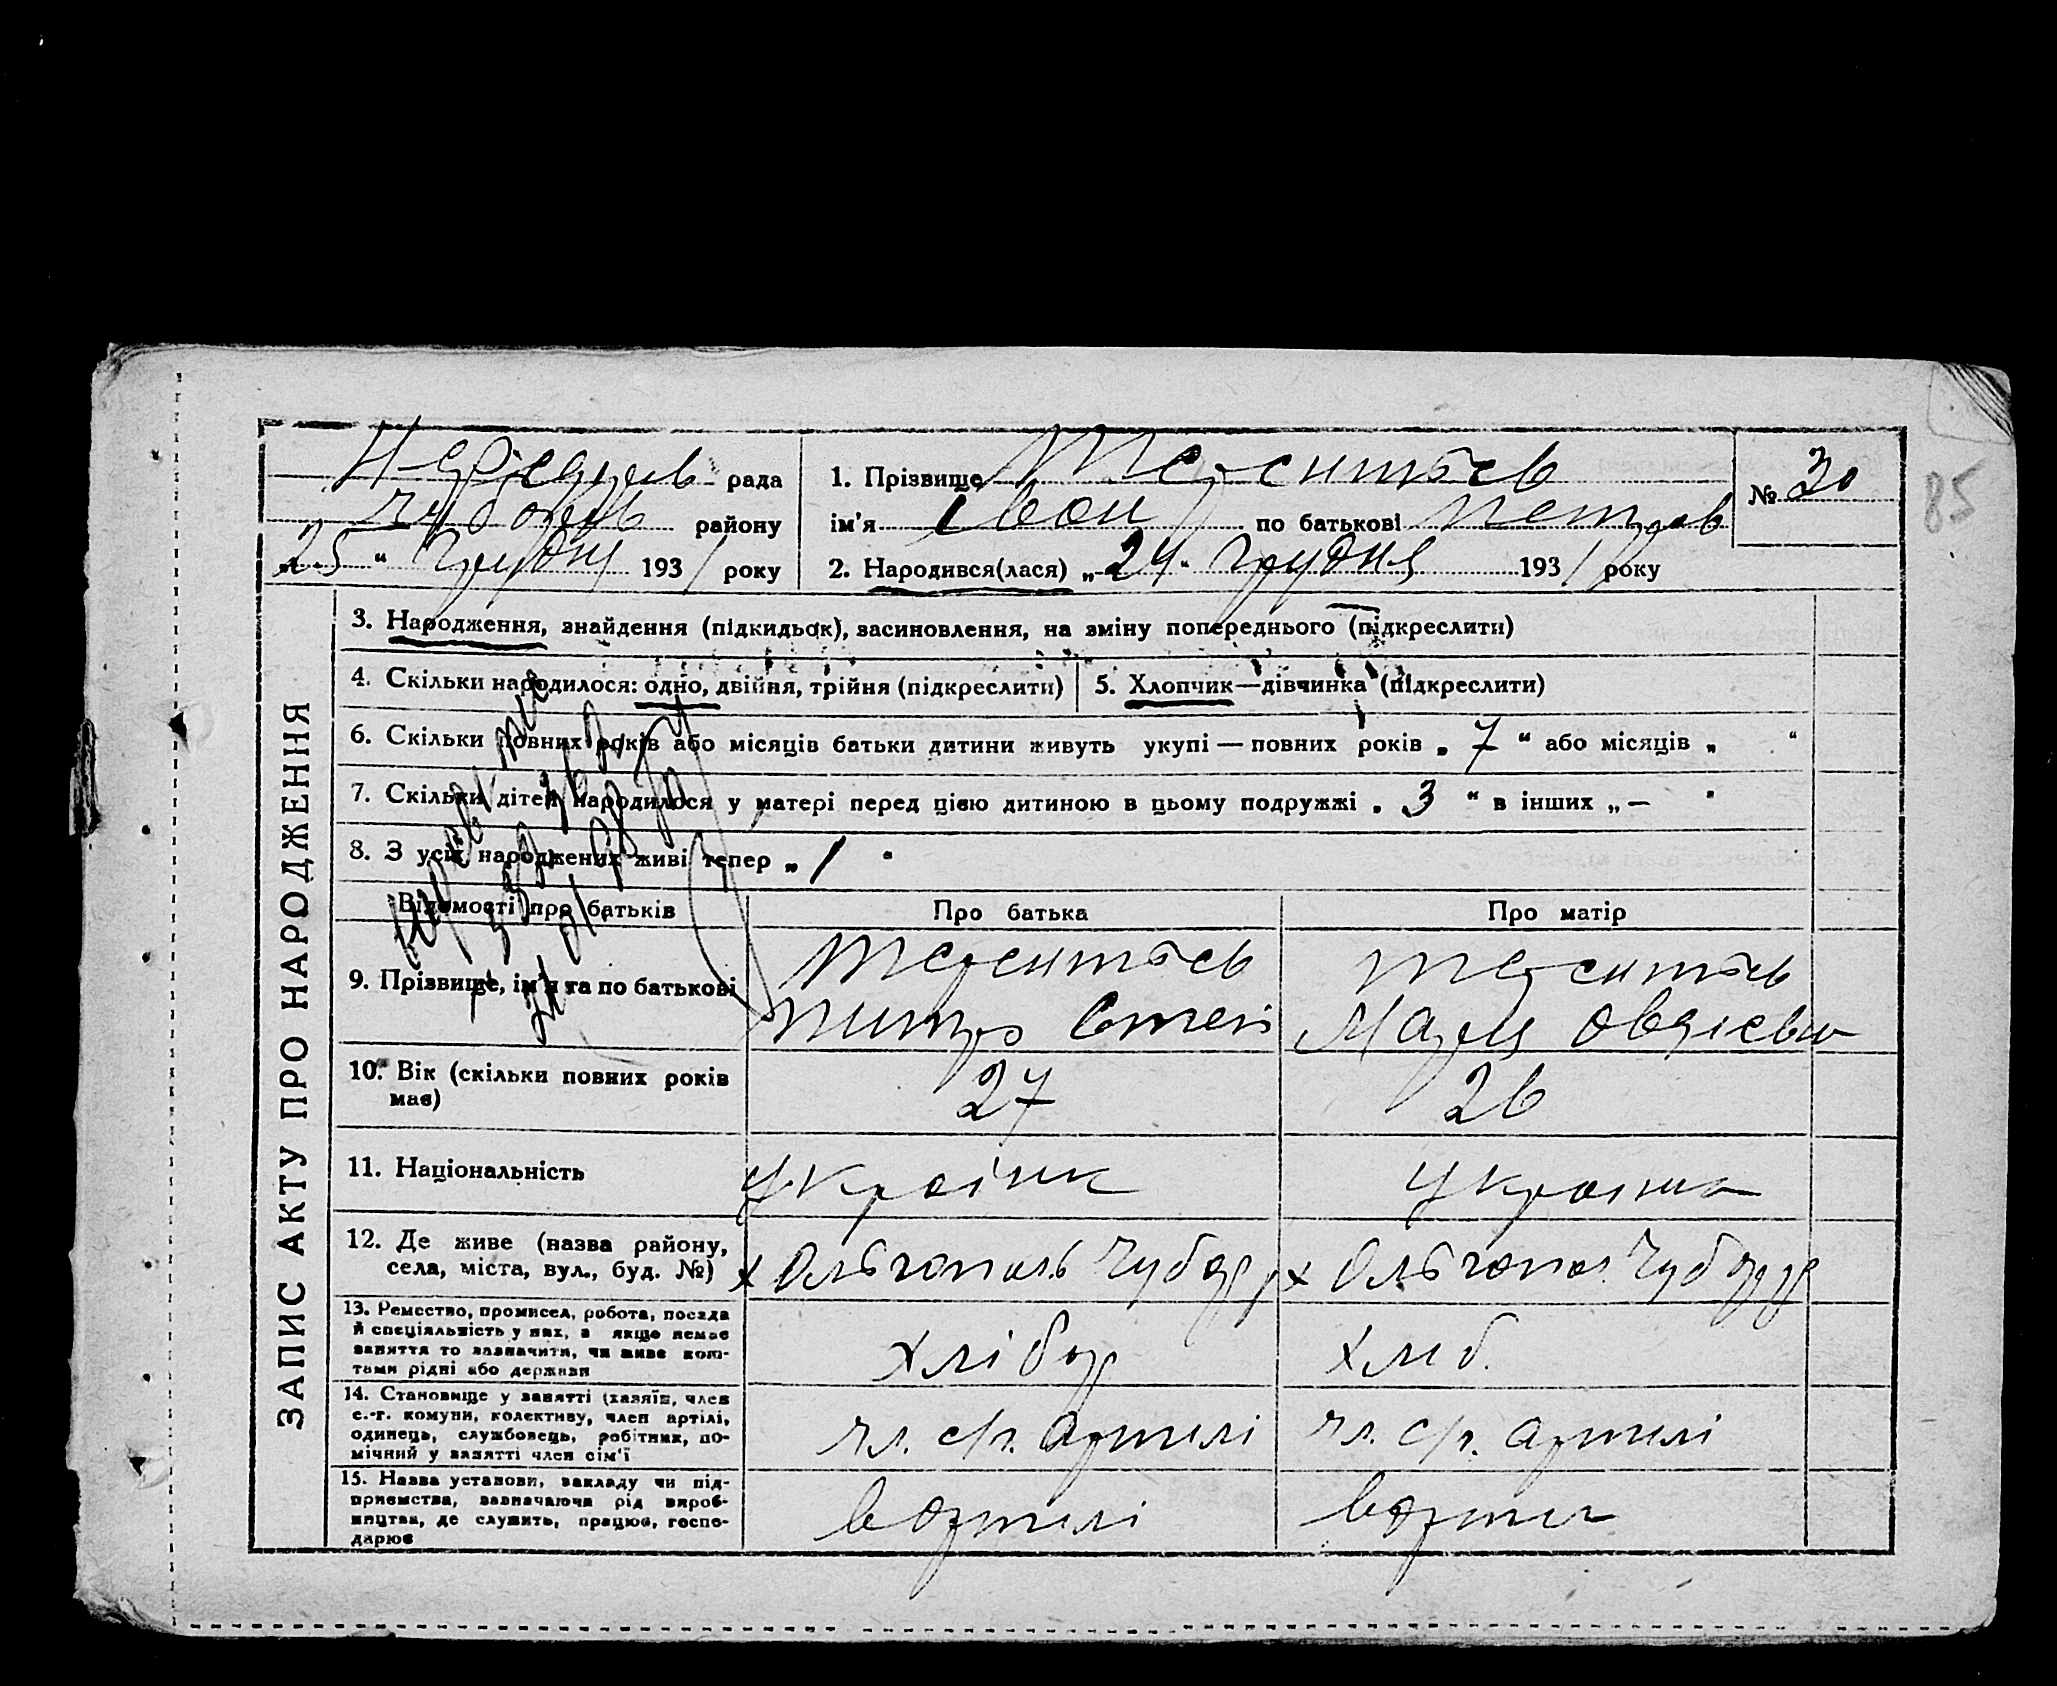 рада
району
„25“ грудня 1931 року
1. Прізвище Терентьєв
ім'я Іван по батькові Петров
№ 30
85
2. Народився(лася) „24“ грудня 1931 року
ЗАПИС АКТУ ПРО НАРОДЖЕННЯ
3. Народження, знайдення (підкидьок), засиновлення, на зміну попереднього (підкреслити)
4. Скільки народилося: одно, двійня, трійня (підкреслити)
5. Хлопчик—дівчинка (підкреслити)
6. Скільки повних років або місяців батьки дитини живуть укупі — повних років „ 7 “ або місяців „ “
7. Скільки дітей народилося у матері перед цією дитиною в цьому подружжі „ 3 “ в інших „ — “
8. З усіх народжених живі тепер „ 1 “
Відомості про батьків
Про батька
Про матір
9. Прізвище, ім'я та по батькові
Терентьєв
Терентьєв
10. Вік (скільки повних років має)
27
26
11. Національність
Українк
Україна
12. Де живе (назва району,
села, міста, вул., буд. №)
х Ольгополь Чуб
х Ольгопол. Чуб
13. Ремество, промисел, робота, посада
й спеціяльність у них, а якщо немає
заняття то зазначити, чи живе кош-
тами рідні або держави
хлібор
хліб.
14. Становище у занятті (хазяїн, член
с.-г. комуни, колективу, член артілі,
одинець, службовець, робітник, по-
мічний у занятті член сім'ї
чл. с/г. артилі
чл. с/г. артилі
15. Назва установи, закладу чи під-
приємства, зазначаюча рід вироб-
ництва, де служить, працює, госпо-
дарює
в артилі
в артил